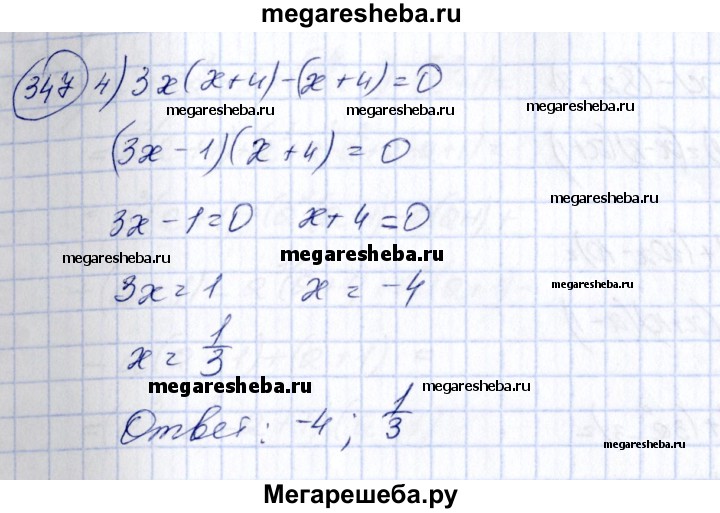 megaresheba.ru
347 4) 3x(x+4)-(x+4)=0
megaresheba.ru megaresheba.ru megaresheba.ru
(3x-1)(x+4)=0
megaresheba.ru
3x-1=0 x+4=0
megaresheba.ru megaresheba.ru
3x=1 x=-4
megaresheba.ru
x=1/3
megaresheba.ru megaresheba.ru
Ответ: -4; 1/3
megaresheba.ru
Мегарешеба.ру